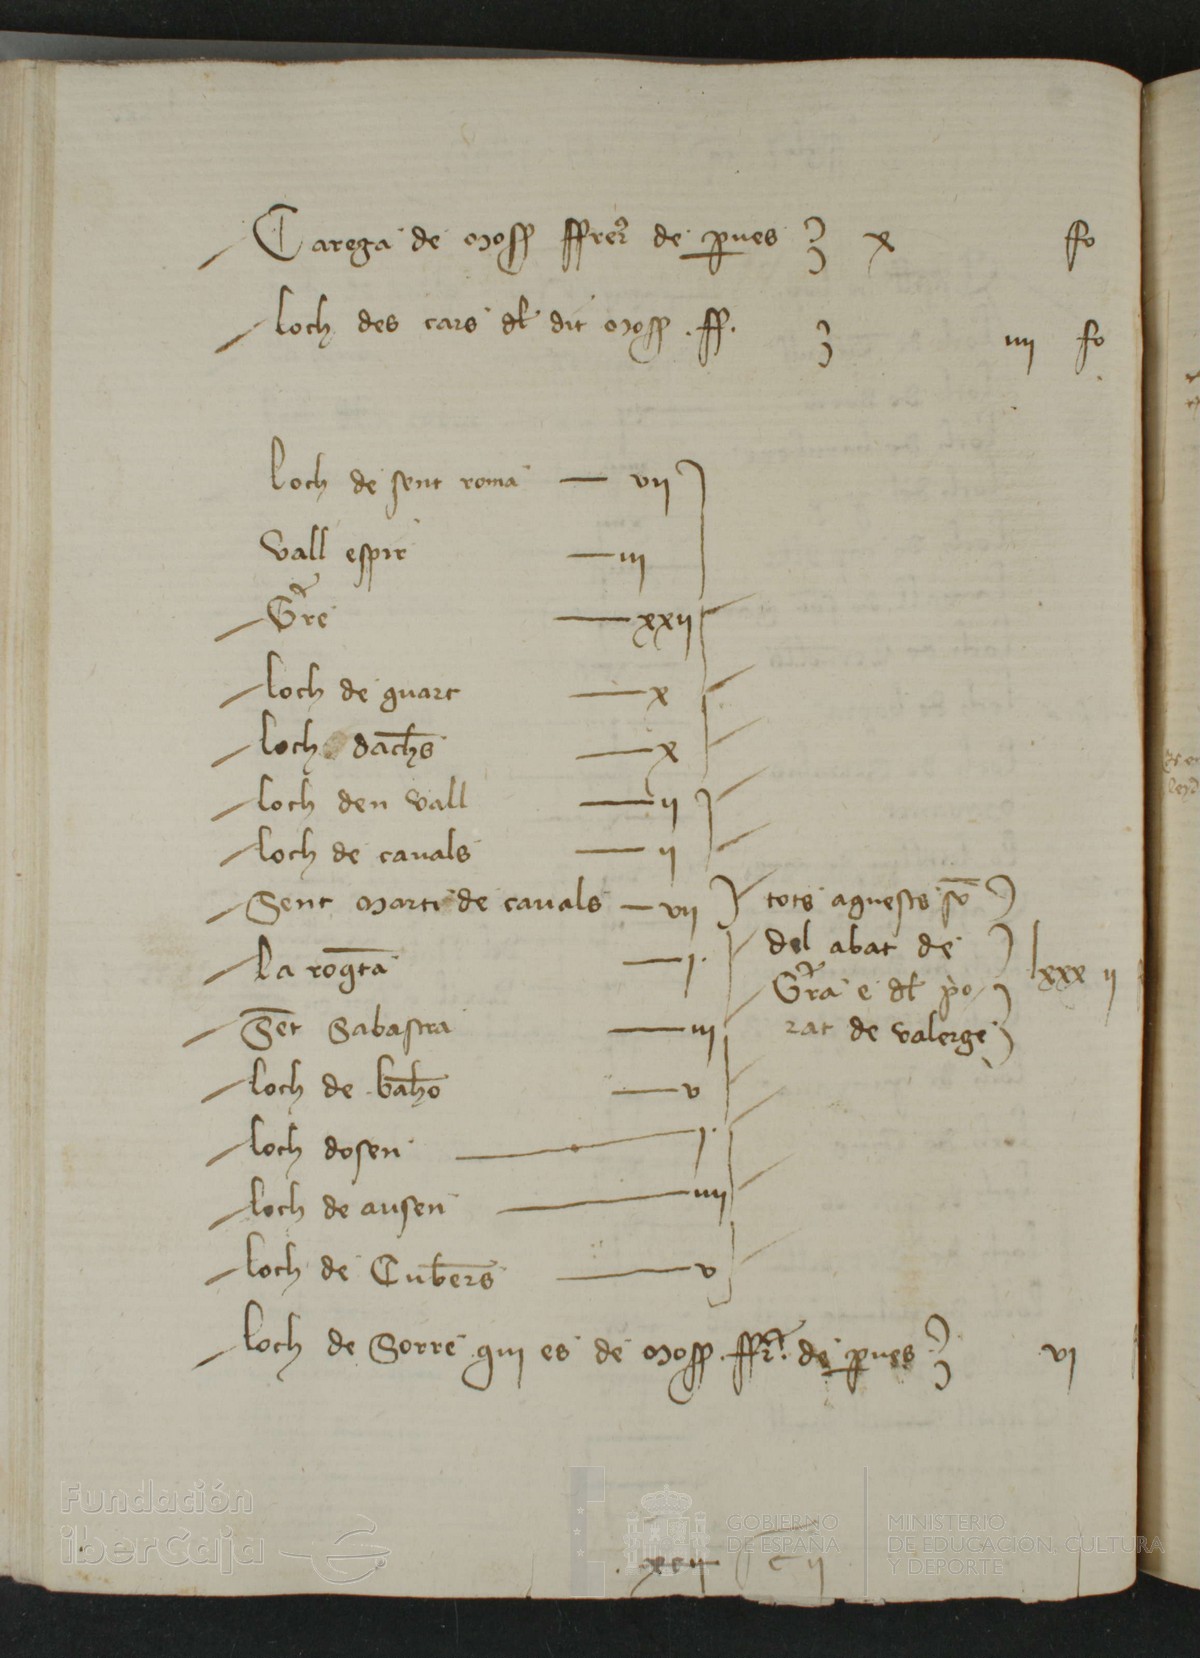 Tarega de moss ffrer de pues x fo
loch des cars dl dit moss . ff. iiii fo
loch de sent roma — vii
vall espir — iii
Gre — xxii
loch de guart — x
loch dachs — x
loch den vall — ii
loch de cavals — ii
Sent marti de cavals — vii
tots aquests so
del abat de
Gra e dl po
rat de valerge
lxxx ii
la rogeta — i.
Set Sabastia — iii
loch de baho — v
loch dosen — i.
loch de ausen — iiii
loch de Cubers — v
loch de Sorre qui es de moss . ffr. de pues vi
xcii c ii
Fundación
iberCaja
GOBIERNO
DE ESPAÑA
MINISTERIO
DE EDUCACIÓN, CULTURA
Y DEPORTE